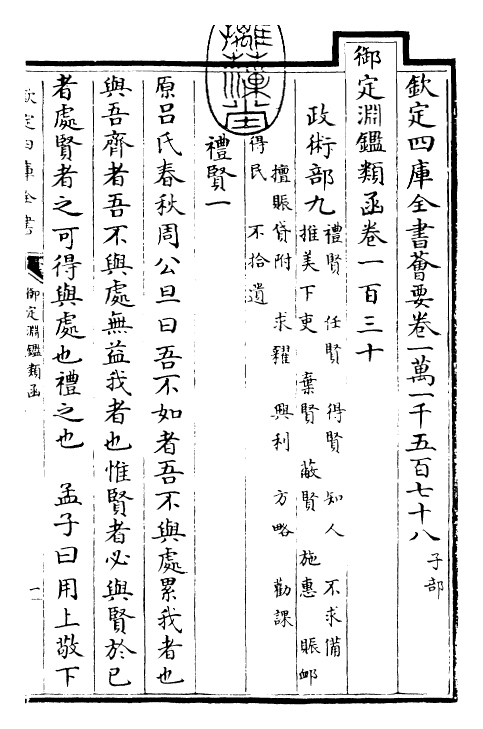 欽定四庫全書薈要卷一萬一千五百七十八 子部
御定淵鑑類函卷一百三十
政術部九 禮賢 任賢 得賢 知人 不求備
推美下吏 棄賢 蔽賢 施惠 賑䘏
擅賑貸附 求糴 興利 方略 勸課
得民 不拾遺
禮賢一
原吕氏春秋周公旦曰吾不如者吾不與處累我者也
與吾齊者吾不與處無益我者也惟賢者必與賢於已
者處賢者之可得與處也禮之也 孟子曰用上敬下
欽定四庫全書
御定淵鑑類函
一
摛藻堂